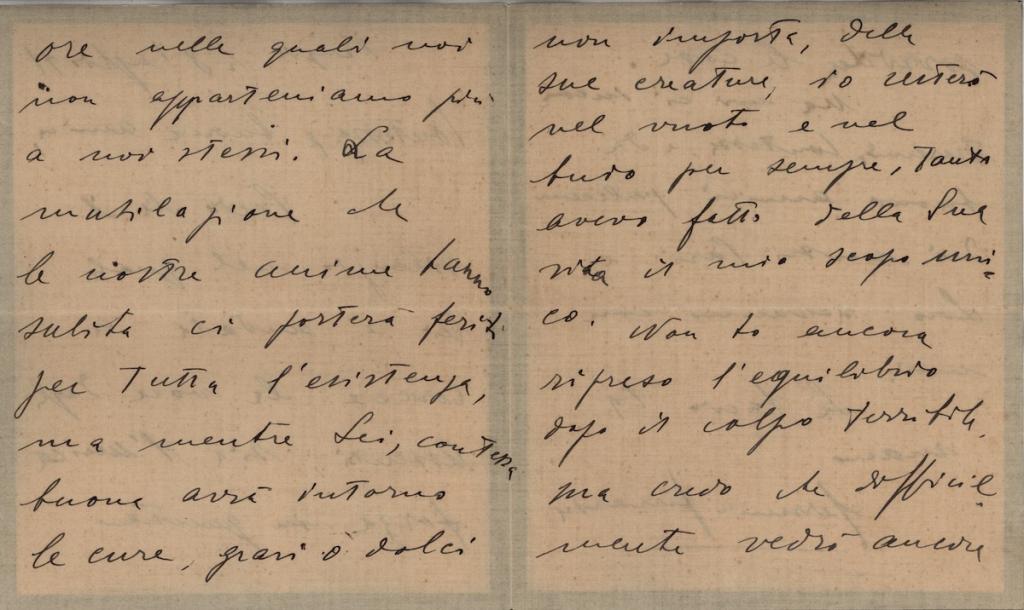 ore nelle quali noi
non apparteniamo più
a noi stessi. La
mutilazione che
le nostre anime hanno
subita ci porterà feriti
per tutta l'esistenza,
ma mentre Lei, contessa
buona avrà intorno
le cure, gravi o dolci
non importa, delle
sue creature, io resterò
nel vuoto e nel
buio per sempre, tanto
avevo fatto della Sua
vita il mio scopo uni=
co. Non ho ancora
ripreso l'equilibrio
dopo il colpo terribile,
ma credo che difficil=
mente vedrò ancora